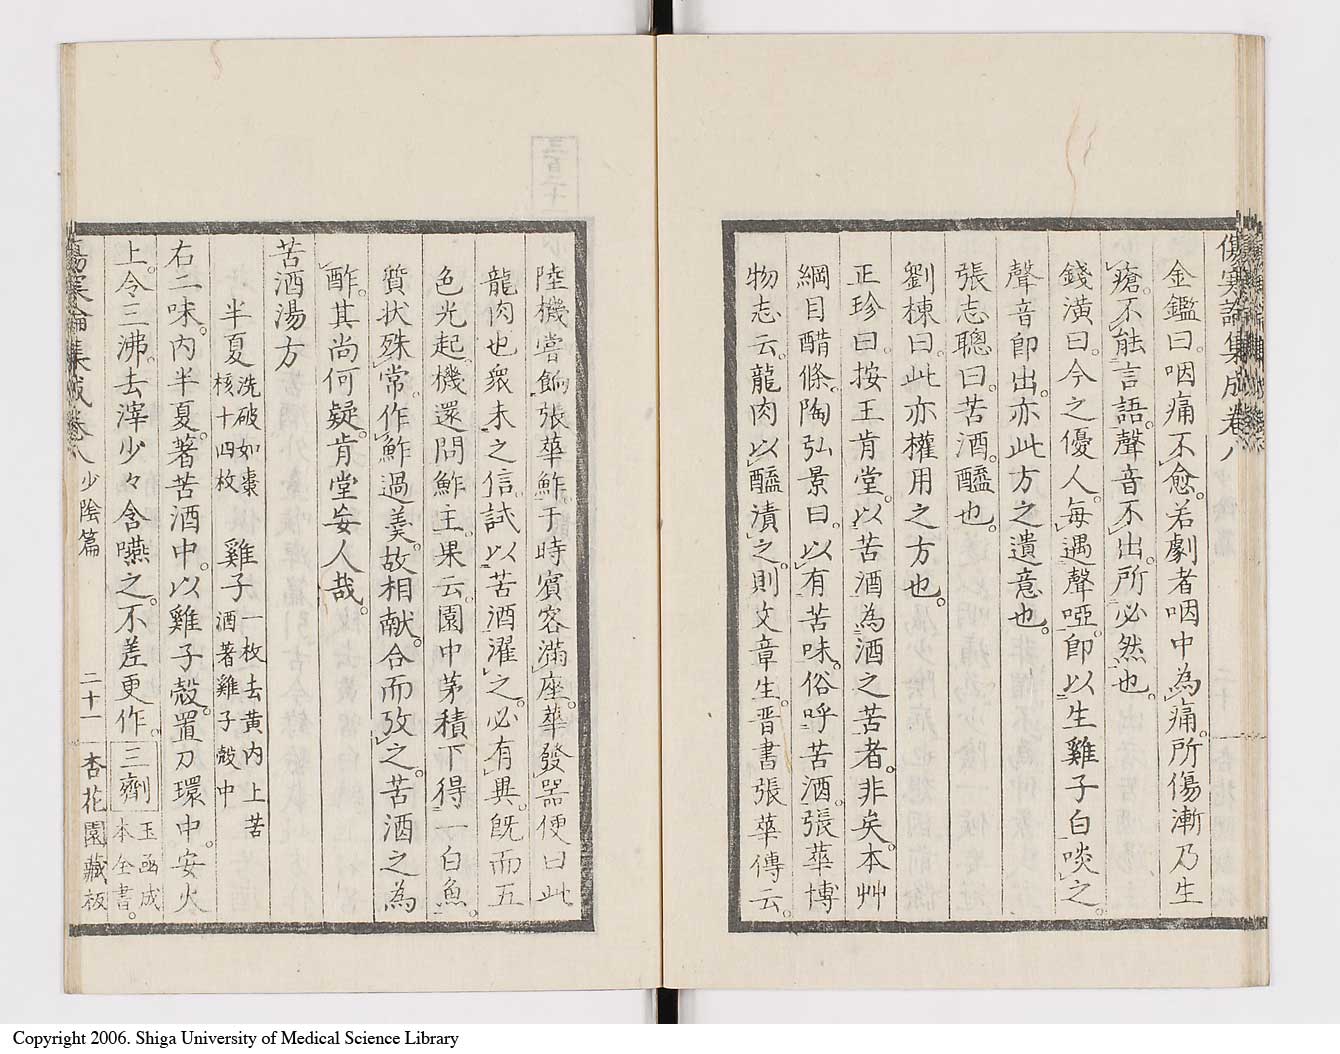 傷寒論集成卷八
金鑑曰。咽痛不愈。若劇者咽中為痛。所傷漸乃生
瘡。不能言語。聲音不出。所必然也。
錢潢曰。今之優人。每遇聲啞。卽以生雞子白啖之
聲音卽出。亦此方之遺意也。
張志聰曰。苦酒。醯也。
劉棟曰。此亦權用之方也。
正珍曰。按王肯堂。以苦酒為酒之苦者。非矣。本艸
綱目醋條。陶弘景曰。以有苦味。俗呼苦酒。張華博
物志云。龍肉以醯漬之。則文章生。晋書張華傳云。
陸機嘗餉張華鮓。于時賓客滿座。華發器便曰此
龍肉也。衆未之信。試以苦酒濯之。必有異。旣而五
色光起。機還問鮓主。果云。園中茅積下得一白魚。
質状殊常。作鮓過美。故相献。合而攷之。苦酒之為
酢。其尚何疑。肯堂妄人哉。
苦酒湯方
半夏 洗破如棗核十四枚 雞子 一枚去黄内上苦酒著雞子殼中
右二味。内半夏。著苦酒中。以雞子殼。置刀環中。安火
上。令三沸。去滓少々含嚥之。不差更作。三劑 玉函成本全書。
傷寒論集成卷八 少陰篇 二十一 杏花園藏板
Copyright 2006. Shiga University of Medical Science Library